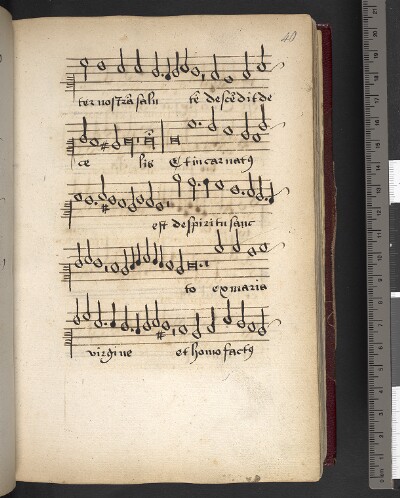 40
ter nostrā salu tē descēdit de
ce lis Et incarnatꝰ
est de spiritu sanc
to ex maria
virgine et homo factꝰ